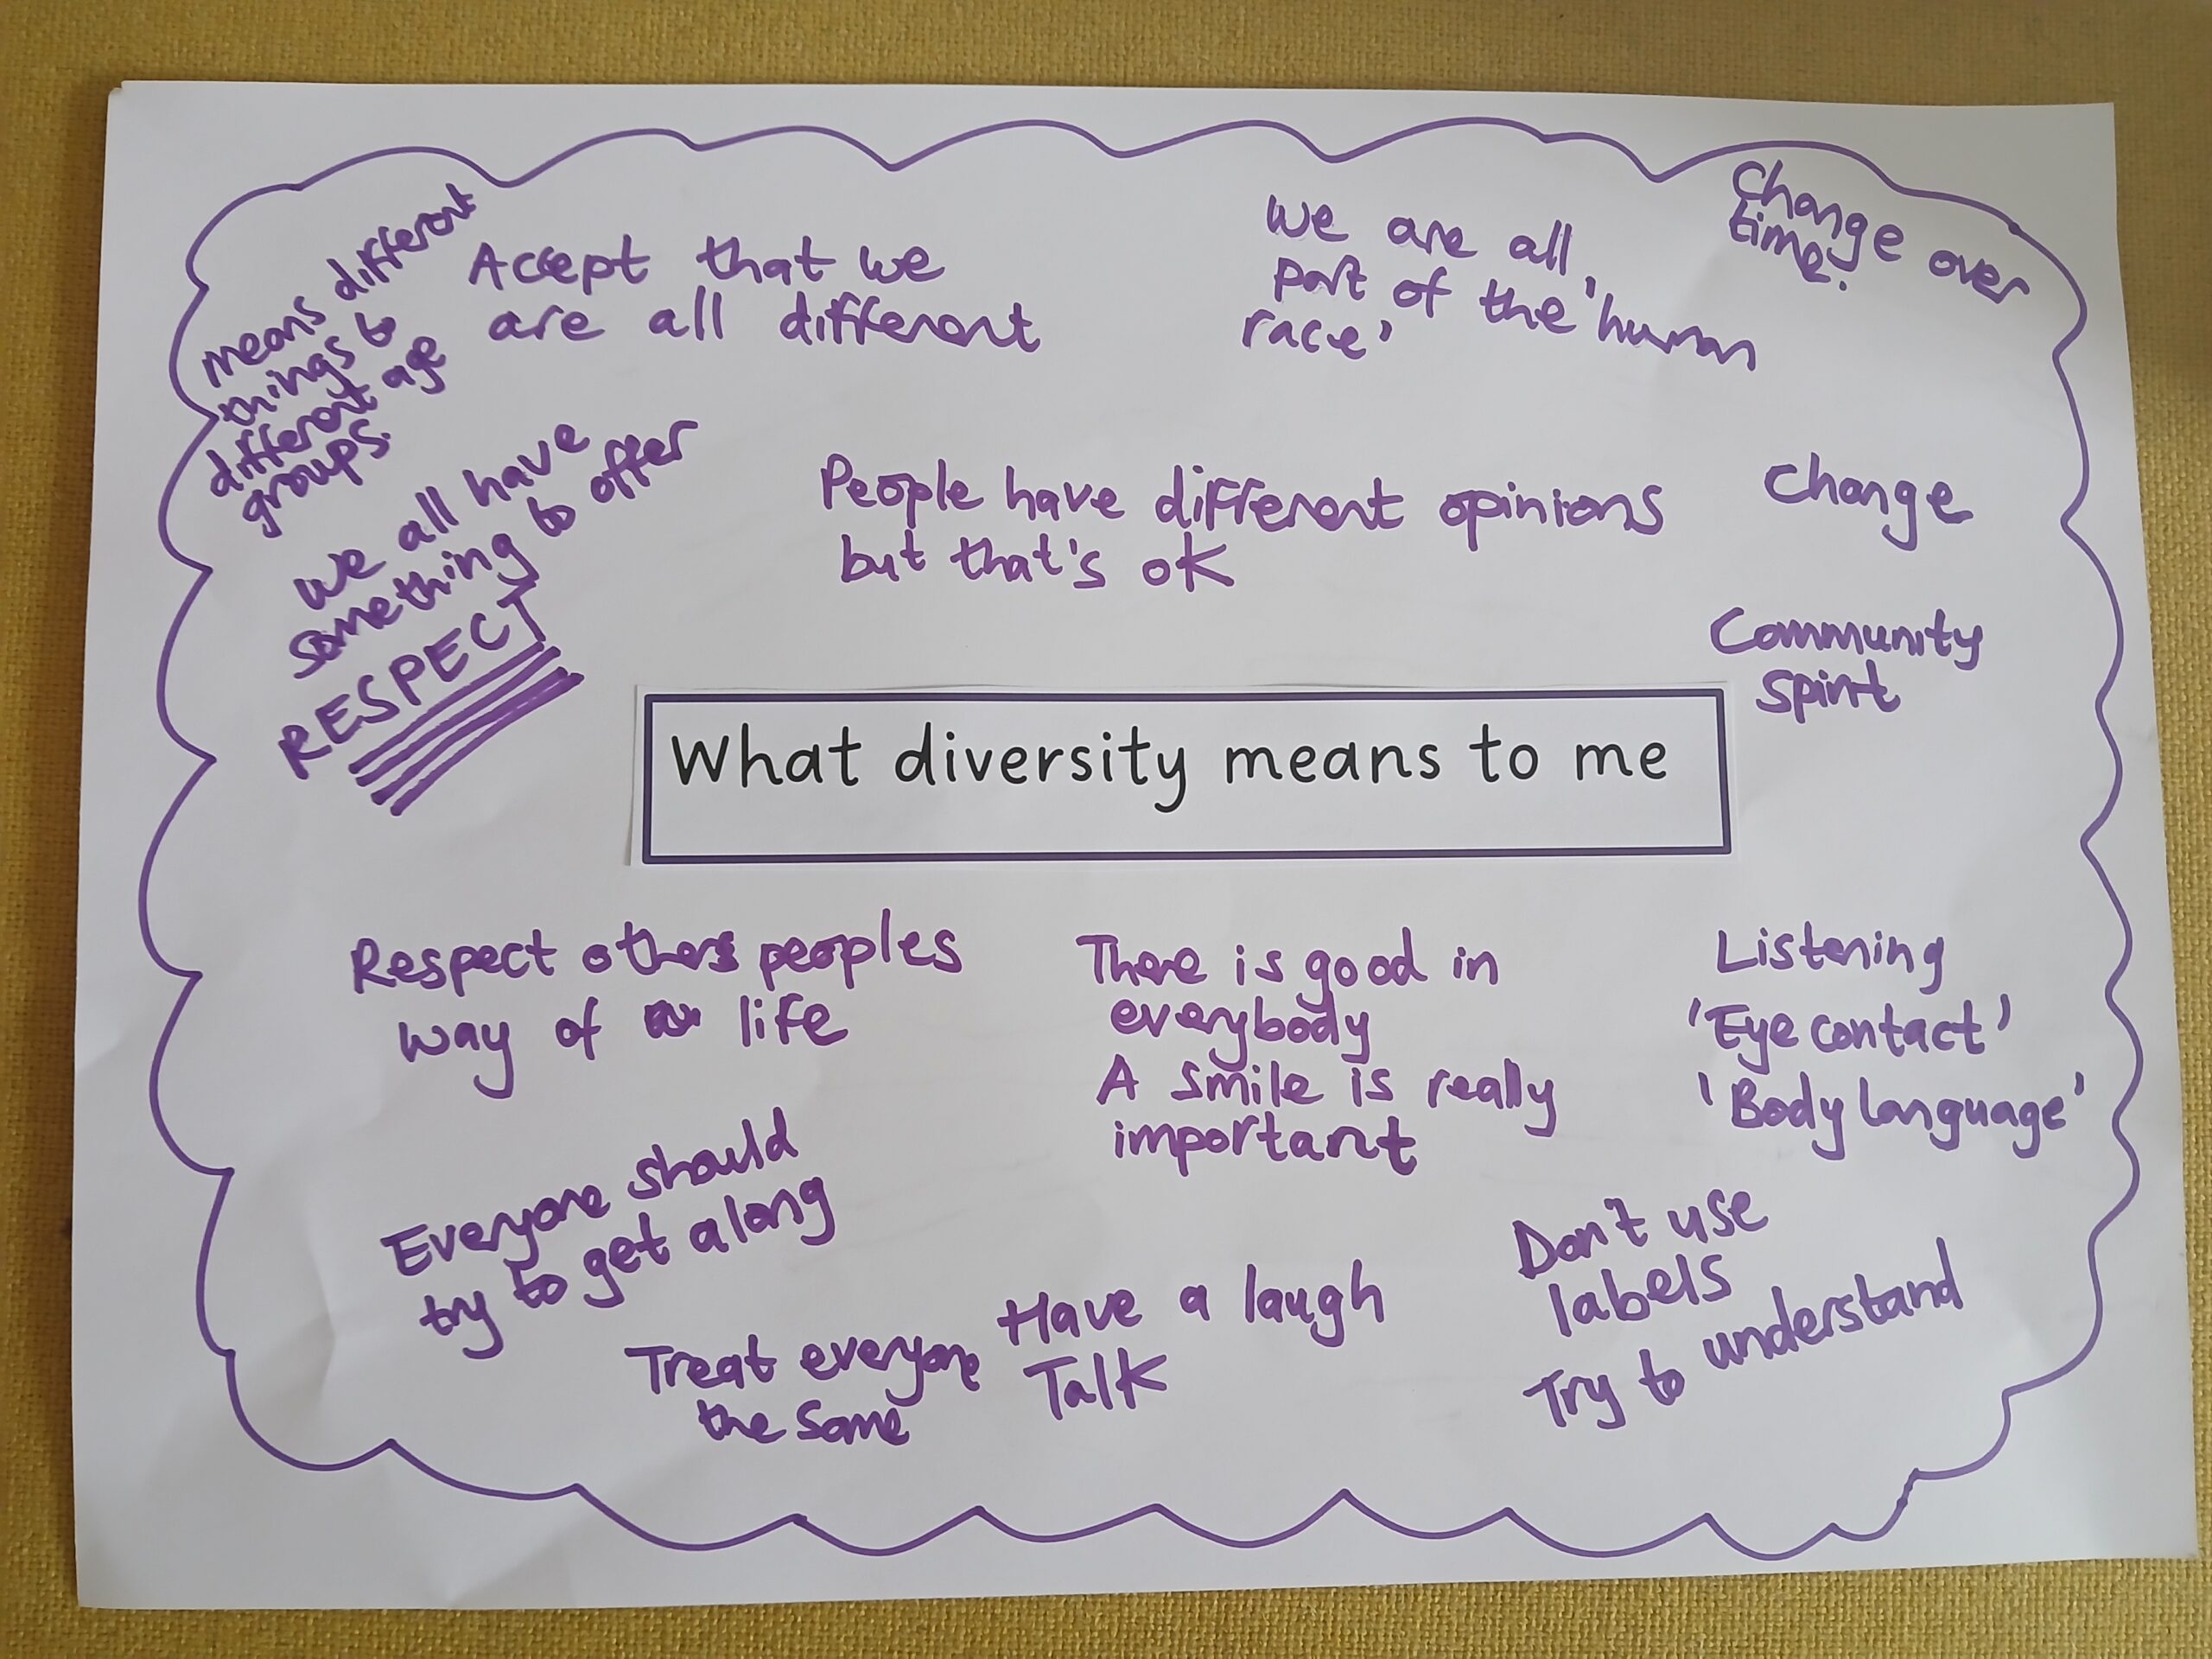 means different
things to
different age
groups.
Accept that we
are all different
We are all
part of the 'human
race'
Change over
time.
we all have
something to offer
RESPECT
People have different opinions
but that's ok
Change
Community
spirit
What diversity means to me
Respect others peoples
way of life
There is good in
everybody
A smile is really
important
Listening
'Eye contact'
'Body language'
Everyone should
try to get along
Treat everyone
the same
Have a laugh
Talk
Don't use
labels
Try to understand